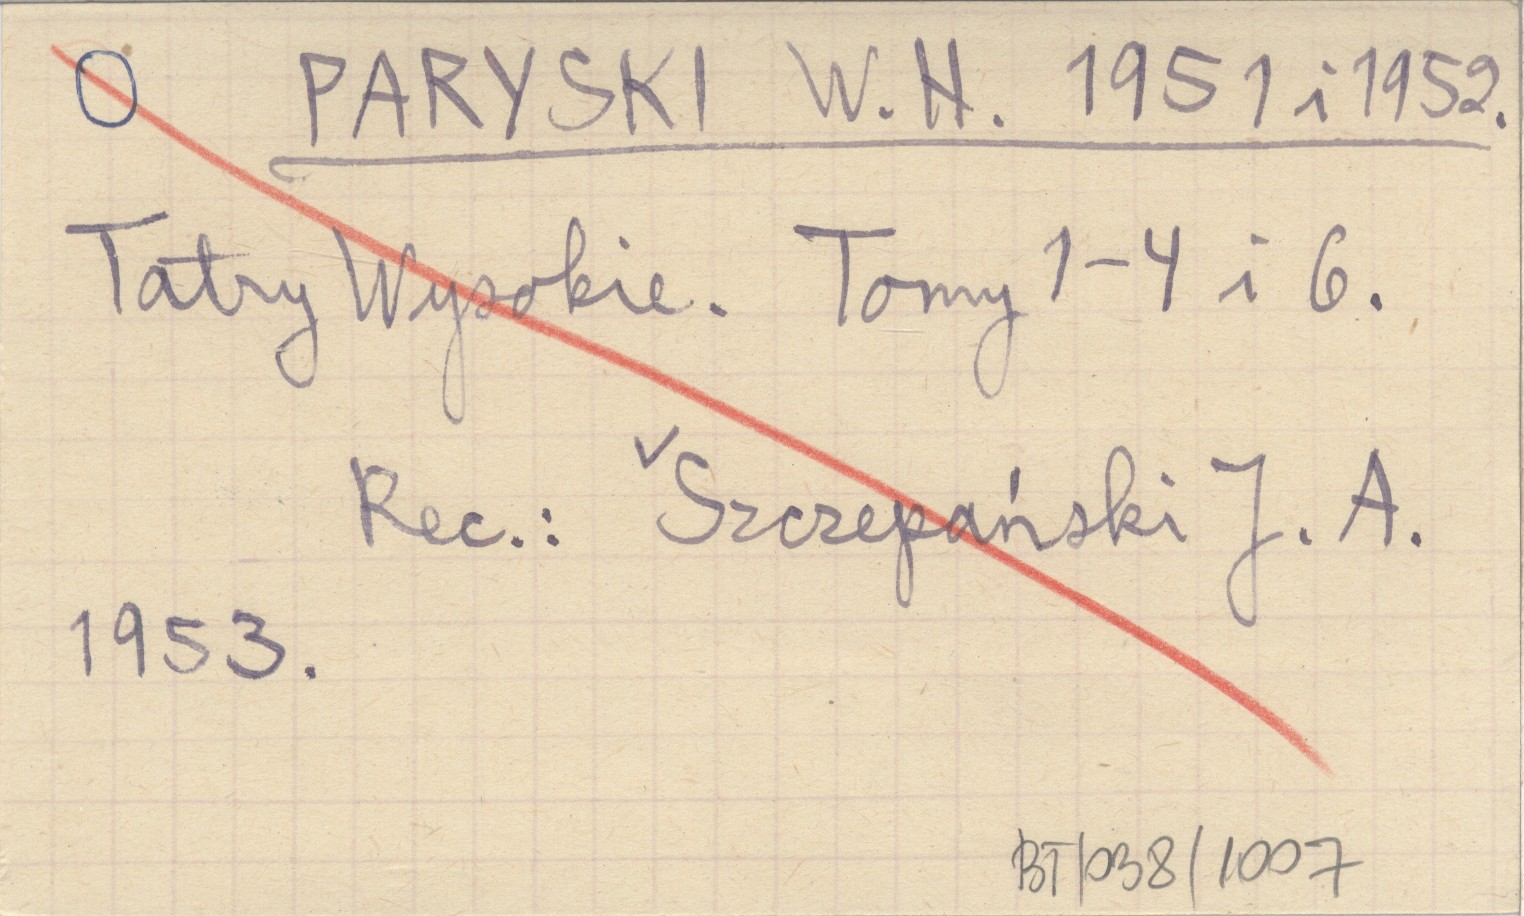 O PARYSKI W.H. 1951 i 1952.
Tatry Wysokie. Tomy 1-4 i 6.
Rec.: Szczepański J. A.
1953.
BT/038/1007